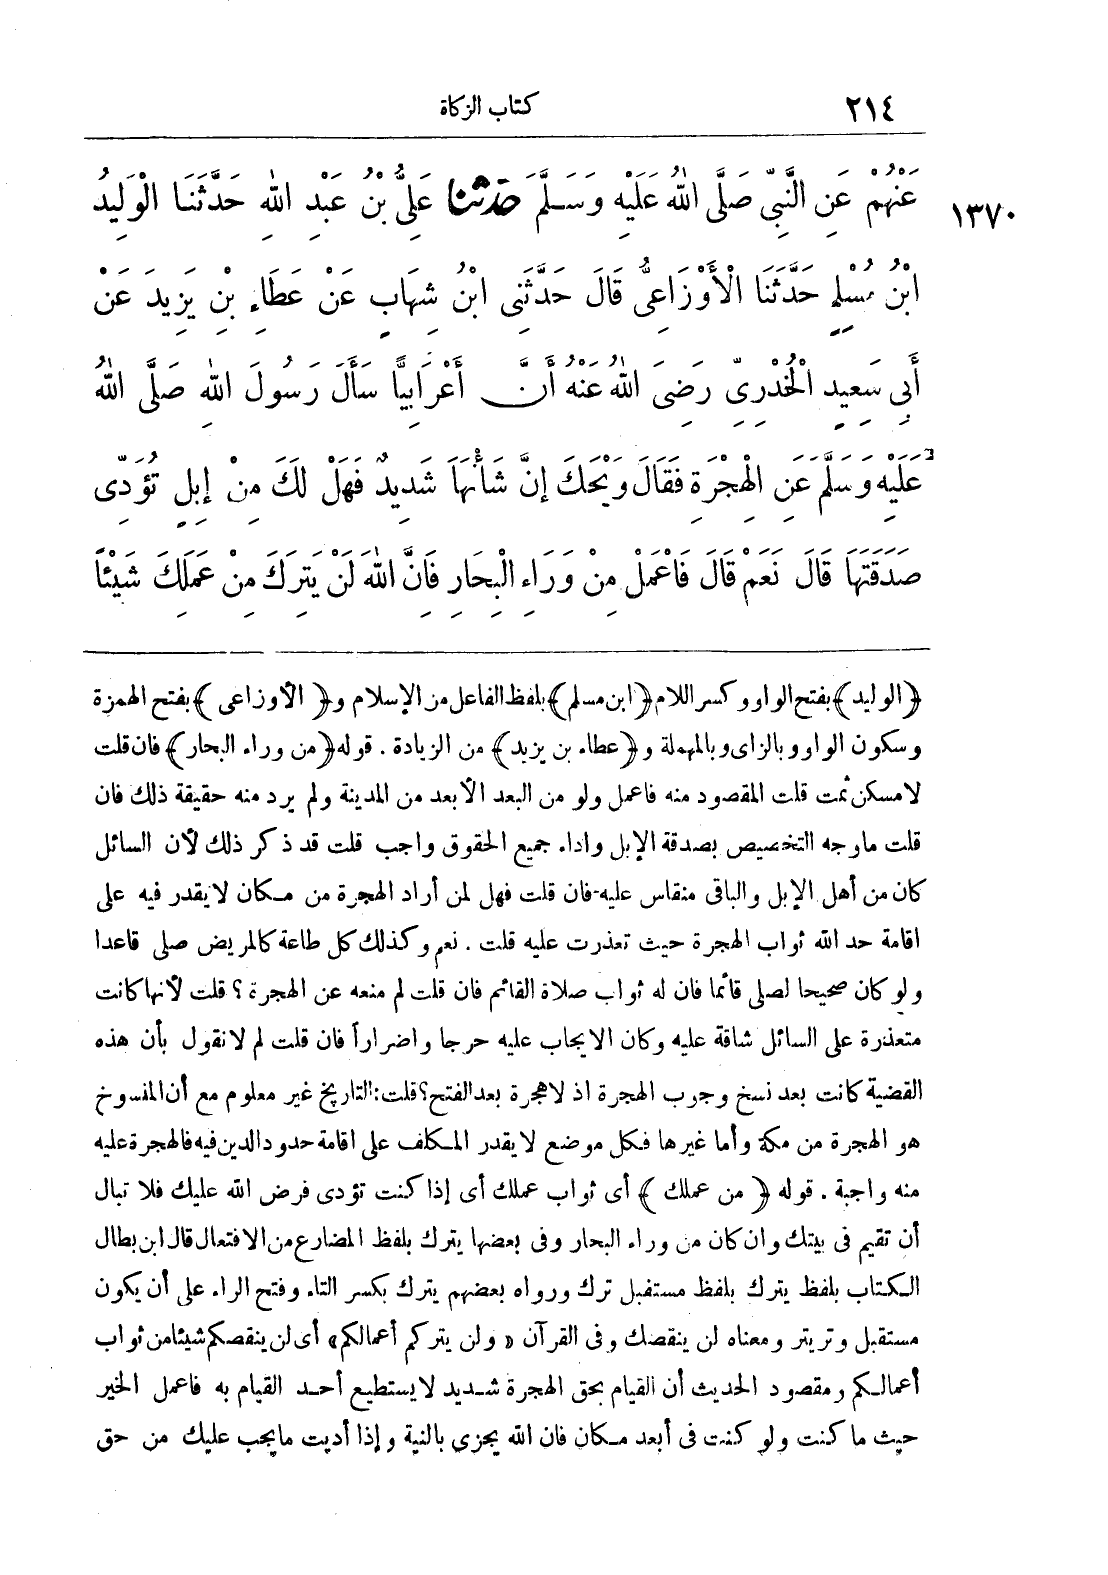 ٢١٤ كتاب الزكاة
عَنْهُمْ عَنِ النَّبِيِّ صَلَّى اللهُ عَلَيْهِ وَسَلَّمَ حَدَّثَنَا عَلِيُّ بْنُ عَبْدِ اللهِ حَدَّثَنَا الْوَلِيدُ
١٣٧٠
ابْنُ مُسْلِمٍ حَدَّثَنَا الْأَوْزَاعِيُّ قَالَ حَدَّثَنِي ابْنُ شِهَابٍ عَنْ عَطَاءِ بْنِ يَزِيدَ عَنْ
أَبِي سَعِيدٍ الْخُدْرِيِّ رَضِيَ اللهُ عَنْهُ أَنَّ أَعْرَابِيًّا سَأَلَ رَسُولَ اللهِ صَلَّى اللهُ
عَلَيْهِ وَسَلَّمَ عَنِ الْهِجْرَةِ فَقَالَ وَيْحَكَ إِنَّ شَأْنَهَا شَدِيدٌ فَهَلْ لَكَ مِنْ إِبِلٍ تُؤَدِّى
صَدَقَتَهَا قَالَ نَعَمْ قَالَ فَاعْمَلْ مِنْ وَرَاءِ الْبِحَارِ فَانَّ اللهَ لَنْ يَتِرَكَ مِنْ عَمَلِكَ شَيْئًا
﴿الوليد﴾ بفتح الواو وكسر اللام ﴿ابن مسلم﴾ بلفظ الفاعل من الإسلام و﴿الأوزاعى﴾ بفتح الهمزة
وسكون الواو وبالزاى وبالمهملة و﴿عطاء بن يزيد﴾ من الزيادة . قوله ﴿من وراء البحار﴾ فان قلت
لا مسكن ثمت قلت المقصود منه فاعمل ولو من البعد الأبعد من المدينة ولم يرد منه حقيقة ذلك فان
قلت ماوجه التخصيص بصدقة الإبل واداء جميع الحقوق واجب قلت قد ذكر ذلك لأن السائل
كان من أهل الإبل والباقى منقاس عليه فان قلت فهل لمن أراد الهجرة من مكان لا يقدر فيه على
اقامة حد الله ثواب الهجرة حيث تعذرت عليه قلت . نعم وكذلك كل طاعة كالمريض صلى قاعدا
ولو كان صحيحا لصلى قائما فان له ثواب صلاة القائم فان قلت لم منعه عن الهجرة ؟ قلت لأنها كانت
متعذرة على السائل شاقة عليه وكان الايجاب عليه حرجا واضراراً فان قلت لم لا نقول بأن هذه
القضية كانت بعد نسخ وجوب الهجرة اذ لا هجرة بعد الفتح؟ قلت: التاريخ غير معلوم مع أن المنسوخ
هو الهجرة من مكة وأما غيرها فكل موضع لا يقدر المكلف على اقامة حدود الدين فيه فالهجرة عليه
منه واجبة . قوله ﴿من عملك﴾ أى ثواب عملك أى إذا كنت تؤدى فرض الله عليك فلا تبال
أن تقيم فى بيتك وان كان من وراء البحار وفى بعضها يترك بلفظ المضارع من الافتعال قال ابن بطال
الكتاب بلفظ يترك بلفظ مستقبل ترك ورواه بعضهم يترك بكسر التاء وفتح الراء على أن يكون
مستقبل وتر يتر ومعناه لن ينقصك وفى القرآن «ولن يتركم أعمالكم» أى لن ينقصكم شيئا من ثواب
أعمالكم ومقصود الحديث أن القيام بحق الهجرة شديد لا يستطيع أحد القيام به فاعمل الخير
حيث ما كنت ولو كنت فى أبعد مكان فان الله يجزى بالنية وإذا أديت ما يجب عليك من حق